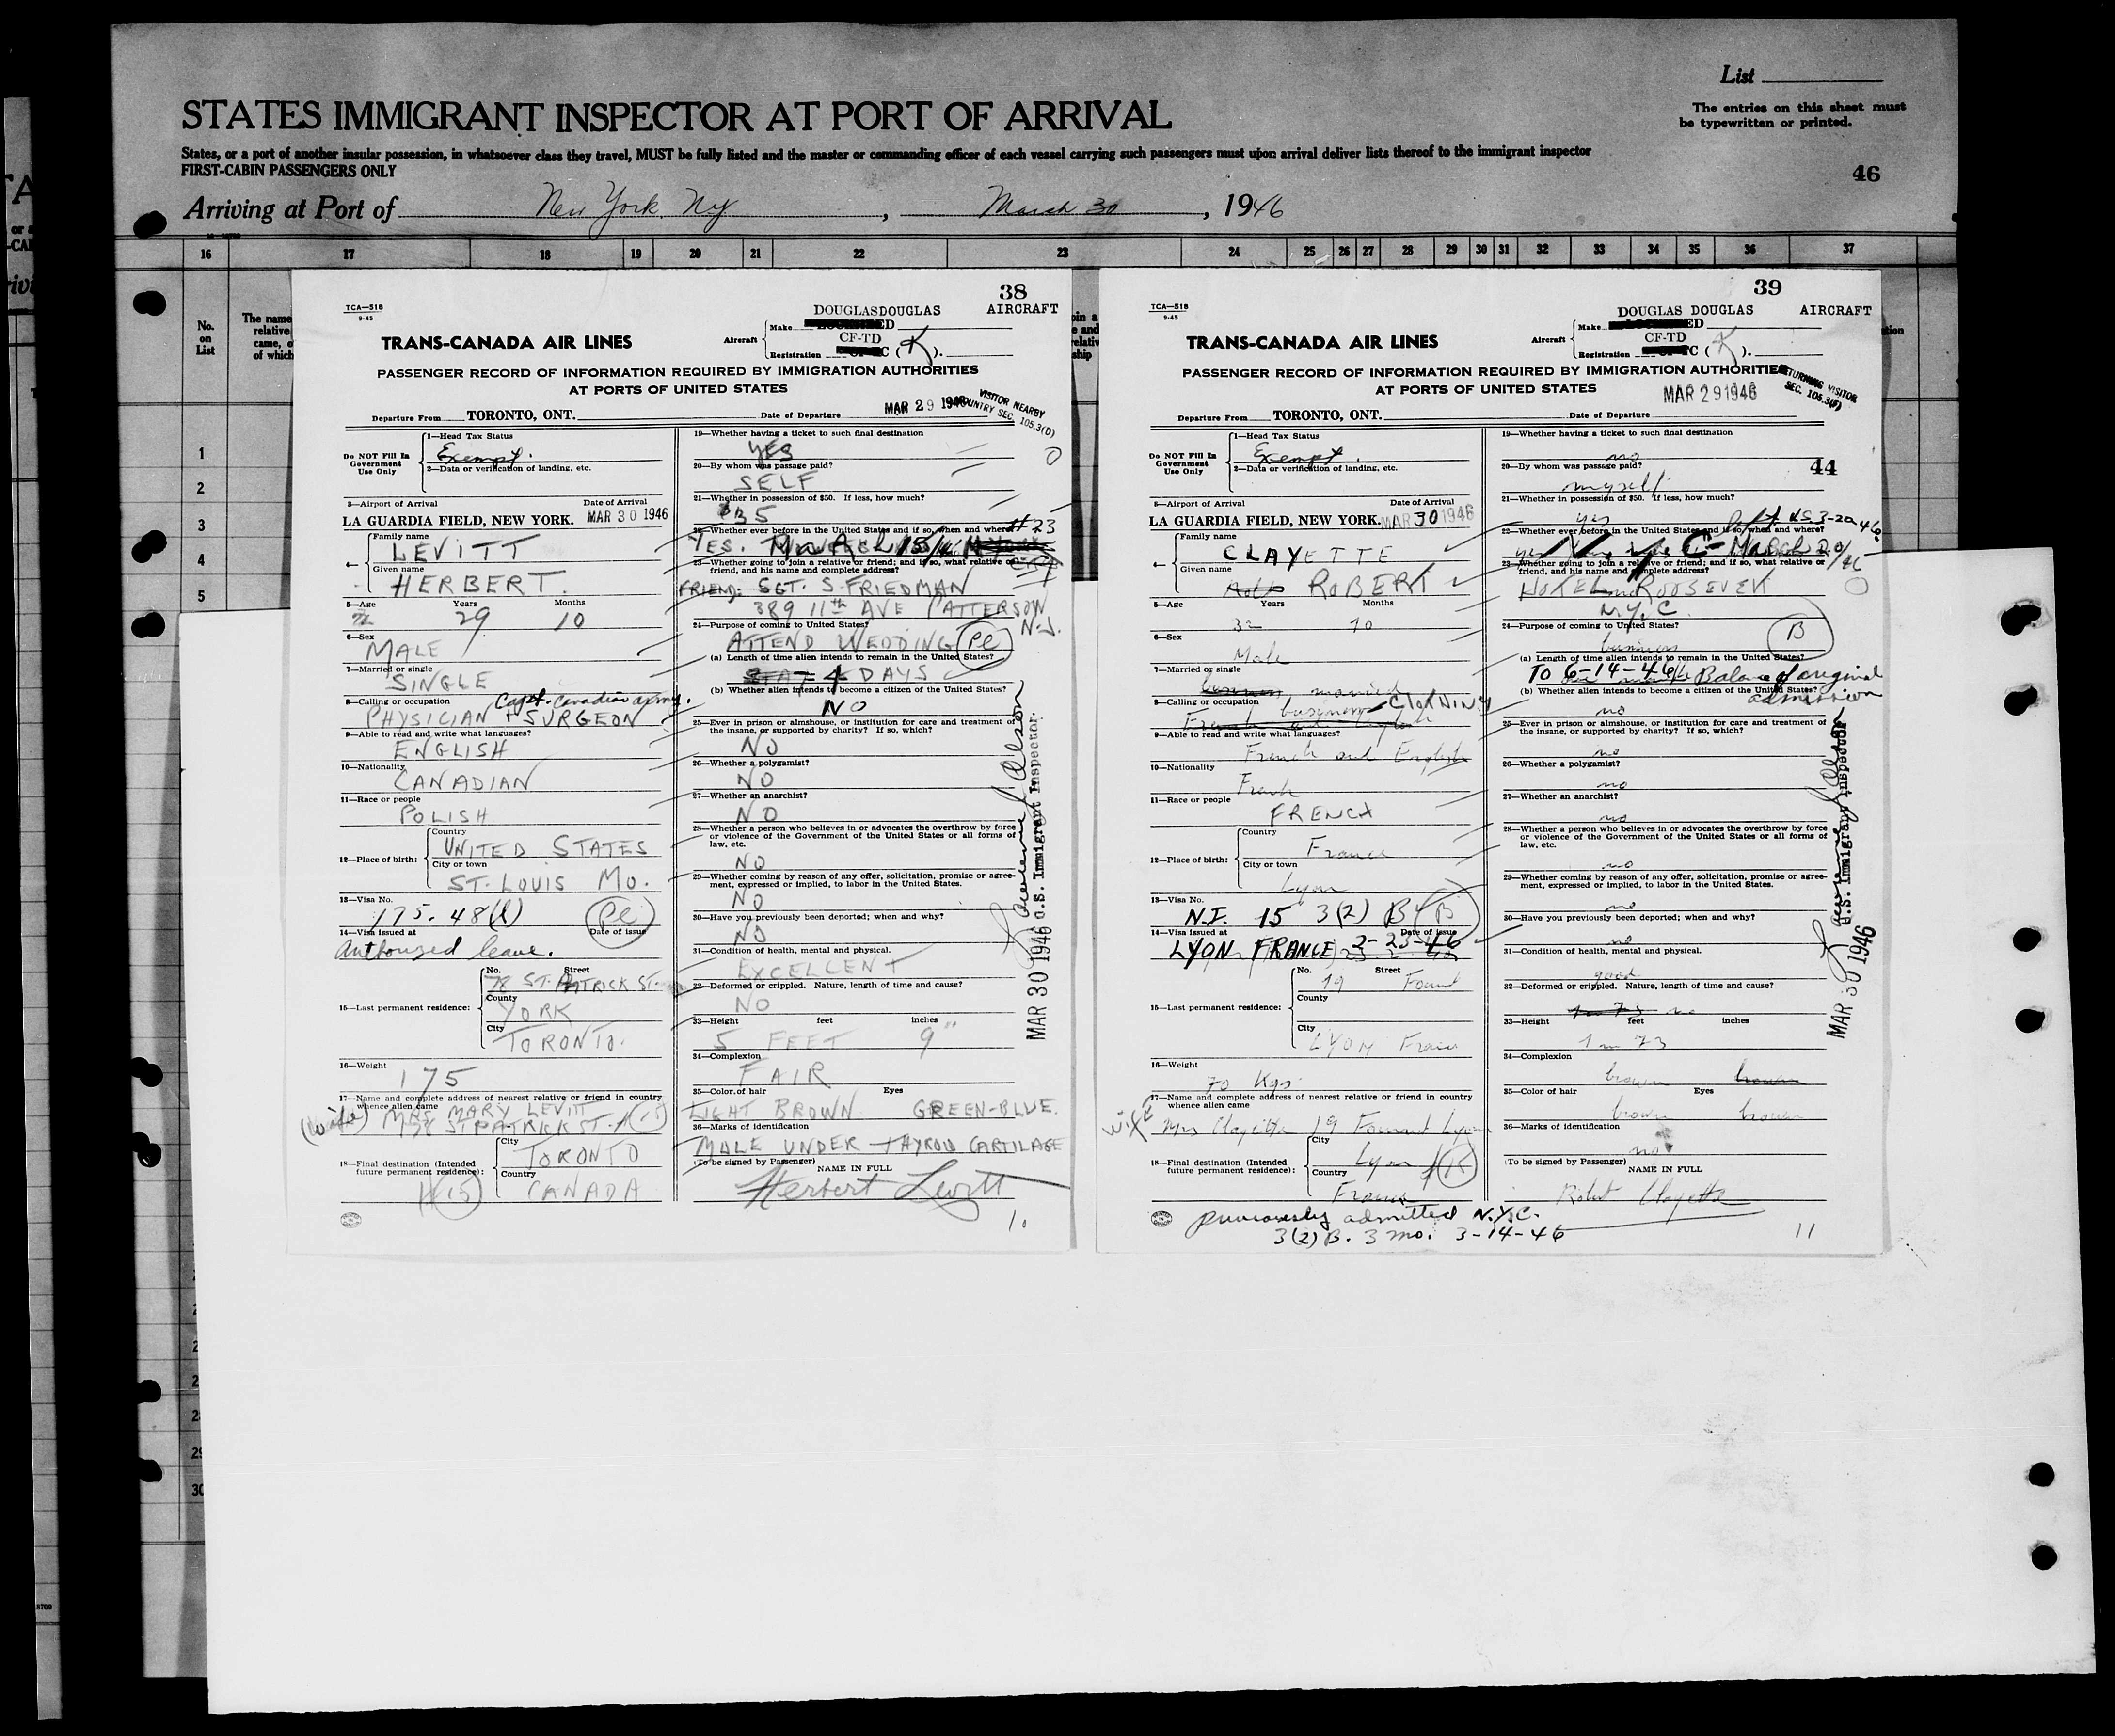 List
The entries on this sheet must
be typewritten or printed.
STATES IMMIGRANT INSPECTOR AT PORT OF ARRIVAL
States, or a port of another insular possession, in whatsoever class they travel, MUST be fully listed and the master or commanding officer of each vessel carrying such passengers must upon arrival deliver lists thereof to the immigrant inspector
FIRST-CABIN PASSENGERS ONLY
46
Arriving at Port of New York, Ny, March 30, 1946
16 17 18 19 20 21 22 23 24 25 26 27 28 29 30 31 32 33 34 35 36 37
No.
on
List
The name
relative
came, o
of which
1
2
3
4
5
29
30
38
TCA—518
9-45
DOUGLAS DOUGLAS AIRCRAFT
Make
TRANS-CANADA AIR LINES
Aircraft
CF-TD
Registration C (K).
PASSENGER RECORD OF INFORMATION REQUIRED BY IMMIGRATION AUTHORITIES
AT PORTS OF UNITED STATES
VISITOR NEARBY
COUNTRY SEC. 105.3(D)
Departure From TORONTO, ONT. Date of Departure MAR 29 1946
Do NOT Fill In
Government
Use Only
1—Head Tax Status
Exempt.
2—Data or verification of landing, etc.
3—Airport of Arrival Date of Arrival
LA GUARDIA FIELD, NEW YORK. MAR 30 1946
4— Family name
LEVITT
Given name
HERBERT.
5—Age Years Months
29 10
6—Sex
MALE
7—Married or single
SINGLE
8—Calling or occupation Capt. Canadian army.
PHYSICIAN + SURGEON
9—Able to read and write what languages?
ENGLISH
10—Nationality
CANADIAN
11—Race or people
POLISH
12—Place of birth:
Country
UNITED STATES
City or town
ST. LOUIS MO.
13—Visa No.
175. 48(l) Pl
14—Visa issued at Date of issue
Authorized leave.
15—Last permanent residence:
No. Street
78 ST. PATRICK ST.
County
YORK
City
TORONTO.
16—Weight
175
17—Name and complete address of nearest relative or friend in country
whence alien came
MRS. MARY LEVITT
178 ST PATRICK ST.
18—Final destination (Intended
future permanent residence):
City
TORONTO
Country
CANADA
19—Whether having a ticket to such final destination
YES
20—By whom was passage paid?
SELF
21—Whether in possession of $50. If less, how much?
$35
22—Whether ever before in the United States and if so, when and where?
#23
YES. March 15/46
23—Whether going to join a relative or friend; and if so, what relative or
friend, and his name and complete address?
FRIEND: SGT. S. FRIEDMAN
389 11th AVE PATTERSON
N.J.
24—Purpose of coming to United States?
ATTEND WEDDING Pl
(a) Length of time alien intends to remain in the United States?
4 DAYS
(b) Whether alien intends to become a citizen of the United States?
NO
25—Ever in prison or almshouse, or institution for care and treatment of
the insane, or supported by charity? If so, which?
NO
26—Whether a polygamist?
NO
27—Whether an anarchist?
NO
28—Whether a person who believes in or advocates the overthrow by force
or violence of the Government of the United States or all forms of
law, etc.
NO
29—Whether coming by reason of any offer, solicitation, promise or agree-
ment, expressed or implied, to labor in the United States.
NO
30—Have you previously been deported; when and why?
NO
31—Condition of health, mental and physical.
EXCELLENT
32—Deformed or crippled. Nature, length of time and cause?
NO
33—Height feet inches
5 FEET 9"
34—Complexion
FAIR
35—Color of hair Eyes
LIGHT BROWN GREEN-BLUE.
36—Marks of identification
MOLE UNDER THYROID CARTILAGE
(To be signed by Passenger) NAME IN FULL
Herbert Levitt
10
MAR 30 1946 U.S. Immigrant Inspector.
39
TCA—518
9-45
DOUGLAS DOUGLAS AIRCRAFT
Make
TRANS-CANADA AIR LINES
Aircraft
CF-TD
Registration C (K).
PASSENGER RECORD OF INFORMATION REQUIRED BY IMMIGRATION AUTHORITIES
AT PORTS OF UNITED STATES
RETURNING VISITOR
SEC. 105.3(F)
Departure From TORONTO, ONT. Date of Departure MAR 29 1946
Do NOT Fill In
Government
Use Only
1—Head Tax Status
Exempt.
2—Data or verification of landing, etc.
3—Airport of Arrival Date of Arrival
LA GUARDIA FIELD, NEW YORK. MAR 30 1946
4— Family name
CLAYETTE
Given name
ROBERT
5—Age Years Months
32 10
6—Sex
Male
7—Married or single
married
8—Calling or occupation
business CLOTHING
9—Able to read and write what languages?
French and English
10—Nationality
French
11—Race or people
FRENCH
12—Place of birth:
Country
France
City or town
Lyon
13—Visa No.
N.I. 15 3(2) B B
14—Visa issued at Date of issue
LYON FRANCE 2-23-46
15—Last permanent residence:
No. Street
19
County
City
LYON France
16—Weight
70 Kgs
17—Name and complete address of nearest relative or friend in country
whence alien came
wife Mrs Clayette 19
18—Final destination (Intended
future permanent residence):
City
Lyon
Country
France
previously admitted N.Y.C.
3(2) B. 3 mo. 3-14-46
19—Whether having a ticket to such final destination
no
44
20—By whom was passage paid?
myself
21—Whether in possession of $50. If less, how much?
yes
22—Whether ever before in the United States and if so, when and where?
March 20/46
23—Whether going to join a relative or friend; and if so, what relative or
friend, and his name and complete address?
HOTEL ROOSEVELT
N.Y.C.
24—Purpose of coming to United States?
business B
(a) Length of time alien intends to remain in the United States?
TO 6-14-46 Balance of original
admission
(b) Whether alien intends to become a citizen of the United States?
no
25—Ever in prison or almshouse, or institution for care and treatment of
the insane, or supported by charity? If so, which?
no
26—Whether a polygamist?
no
27—Whether an anarchist?
no
28—Whether a person who believes in or advocates the overthrow by force
or violence of the Government of the United States or all forms of
law, etc.
no
29—Whether coming by reason of any offer, solicitation, promise or agree-
ment, expressed or implied, to labor in the United States.
no
30—Have you previously been deported; when and why?
no
31—Condition of health, mental and physical.
good
32—Deformed or crippled. Nature, length of time and cause?
no
33—Height feet inches
1 m 73
34—Complexion
brown
35—Color of hair Eyes
brown brown
36—Marks of identification
no
(To be signed by Passenger) NAME IN FULL
Robert Clayette
11
MAR 30 1946 U.S. Immigrant Inspector